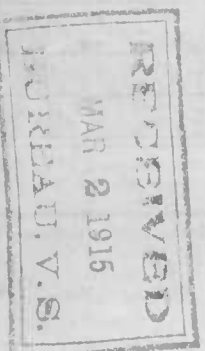 RECEIVED
MAR 2 1915
BUREAU. V.S.